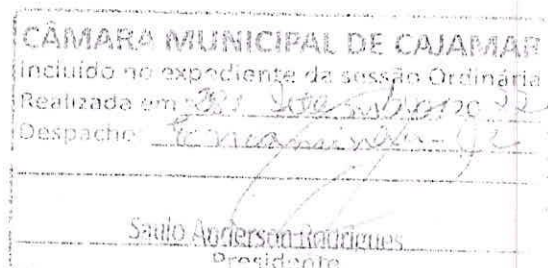 CÂMARA MUNICIPAL DE CAJAMAR
incluído no expediente da sessão Ordinária
Realizada em
Despacho: Encaminha-se
Saulo Anderson Rodrigues
Presidente